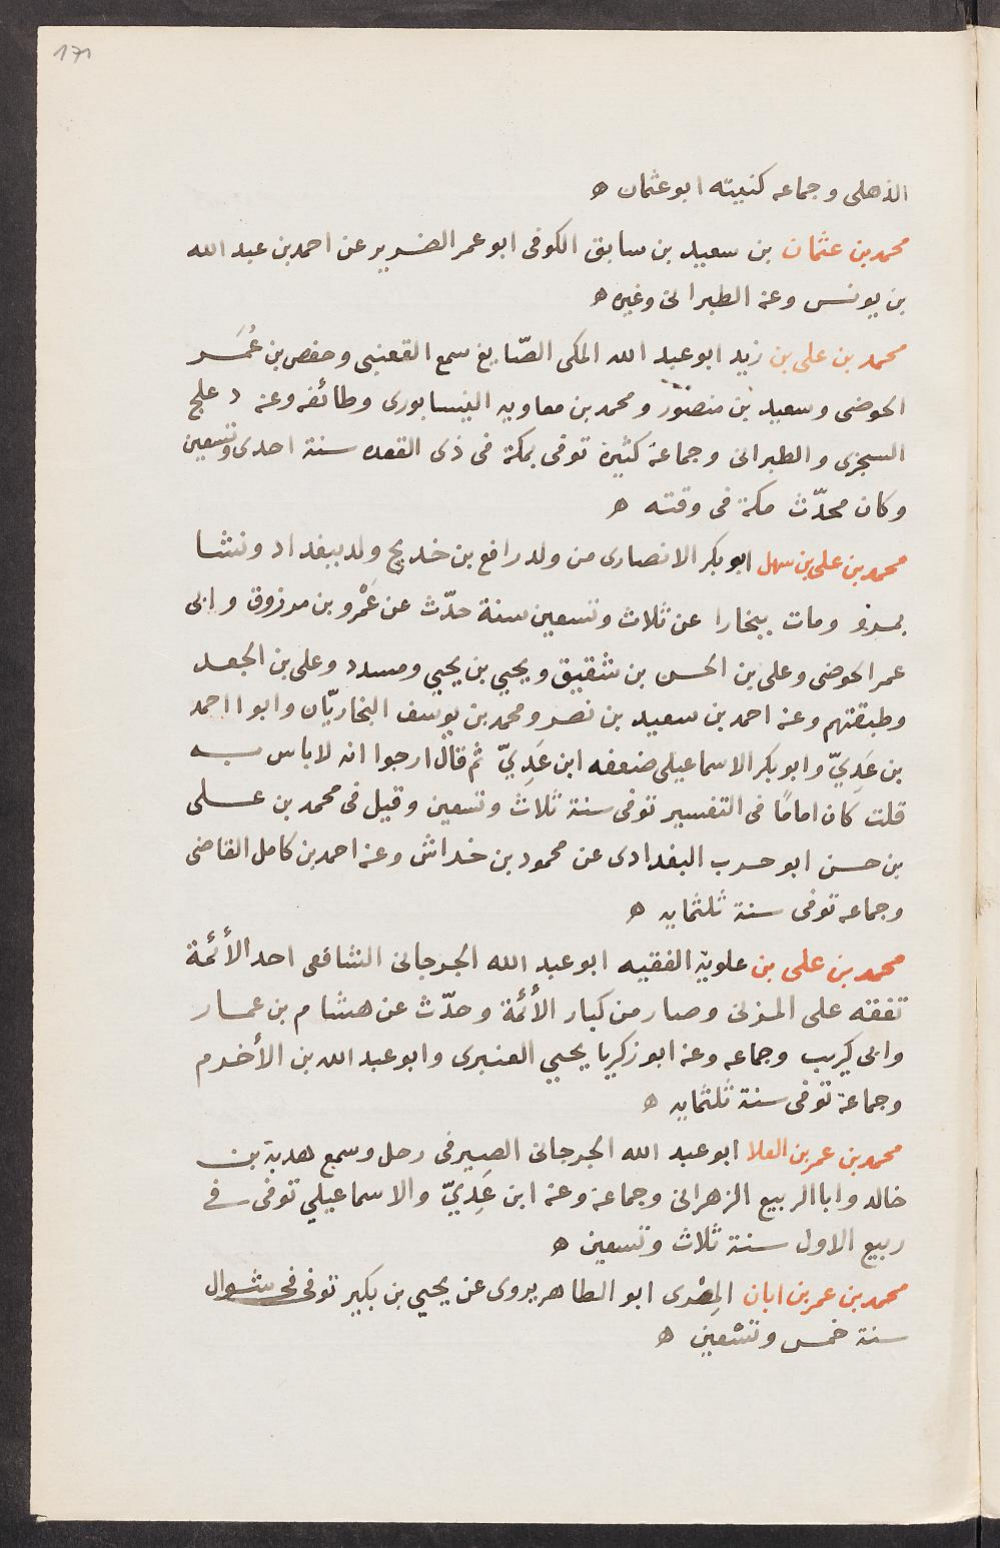 171
الذهلى وجماعه كنيته ابو عثمان ه
محمد بن عثمان بن سعيد بن سابق الكوفى ابو عمر الضرير عن احمد بن عبد الله
بن يونس وعنه الطبرانى وغيره ه
محمد بن على بن زيد ابو عبد الله المكى الصّايغ سمع القعنبى وحفص بن عُمَر
الحوضى وسعيد بن منصور ومحمد بن معاويه النيسابورى وطائفه وعنه دعلج
السجزى والطبرانى وجماعة كثيرة توفى بمكة فى ذى القعده سنة احدى وتسعين
وكان محدّث مكة فى وقته ه
محمد بن على بن سهل ابو بكر الانصارى من ولد رافع بن خديج ولد ببغداد ونشا
بمرو ومات ببخارا عن ثلاث وتسعين سنة حدّث عن عَمْرو بن مرزوق وابى
عمر الحوضى وعلى بن الحسن بن شقيق ويحيي بن يحيي ومسدد وعلى بن الجعد
وطبقتهم وعنه احمد بن سعيد بن نصر ومحمد بن يوسف البخاريّان وابو ااحمد
بن عَدِيّ وابو بكر الاسماعيلى ضعفه ابن عَدِيّ ثم قال ارجوا انه لا باس به
قلت كان امامًا فى التفسير توفى سنة ثلاث وتسعين وقيل فى محمد بن على
بن حسن ابو حرب البغدادى عن محمود بن خداش وعنه احمد بن كامل القاضى
وجماعه توفى سنة ثلثمايه ه
محمد بن على بن علوية الفقيه ابو عبد الله الجرجانى الشافعى احد الأئمة
تفقه على المزنى وصار من كبار الأئمة وحدّث عن هشام بن عمار
وابى كريب وجماعه وعنه ابو زكريا يحيي العنبرى وابو عبد الله بن الأخرم
وجماعة توفى سنة ثلثمايه ه
محمد بن عمر بن العلا ابو عبد الله الجرجانى الصيرفى رحل وسمع هدبة بن
خالد وابا الربيع الزهرانى وجماعة وعنه ابن عَدِيّ والاسماعيلي توفى في
ربيع الاول سنة ثلاث وتسعين ه
محمد بن عمر بن ابان المِصْرى ابو الطاهر يروى عن يحيي بن بكير توفى فى شوال
سنة خمس وتسْعين ه